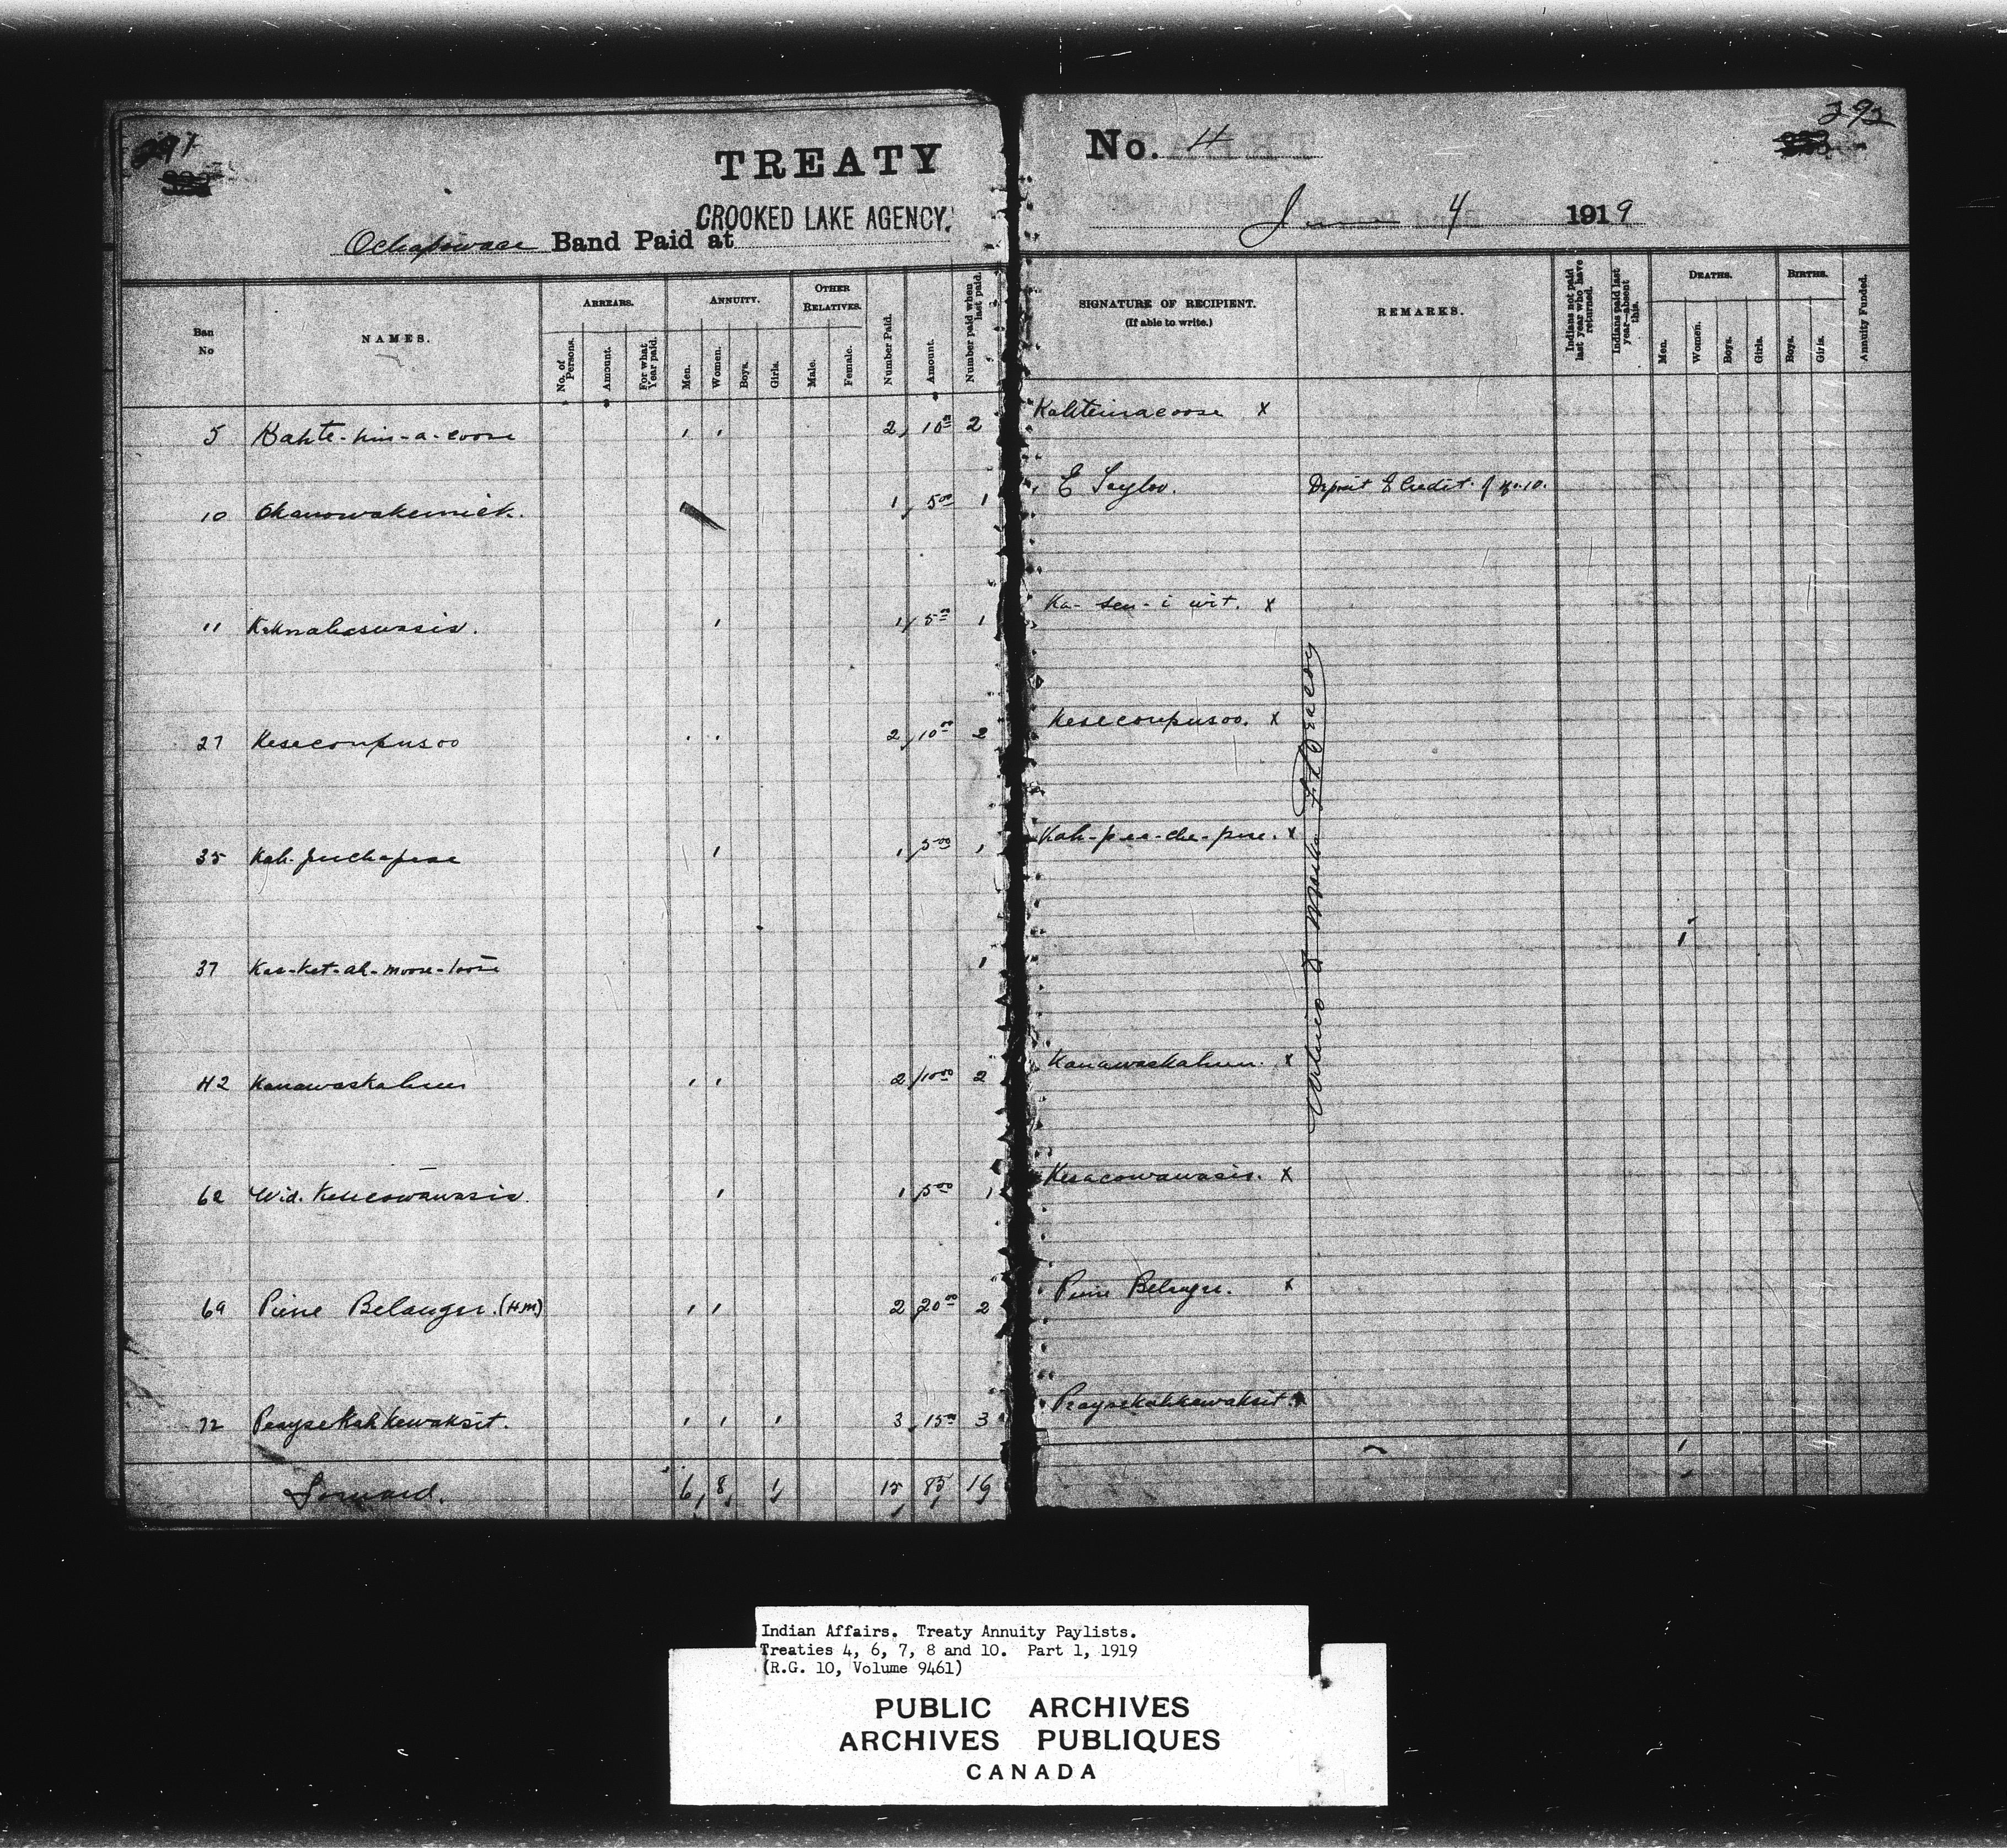 291
292
TREATY No. 4
CROOKED LAKE AGENCY.
Ochapowace Band Paid at
June 4 1919
Ban No
NAMES.
ARREARS.
No. of Persons.
Amount.
For what Year paid.
ANNUITY.
Men.
Women.
Boys.
Girls.
OTHER RELATIVES.
Male.
Female.
Number Paid.
Amount.
Number paid when last paid.
SIGNATURE OF RECIPIENT.
(If able to write.)
REMARKS.
Indians not paid last year who have returned.
Indians paid last year—absent this.
DEATHS.
Men.
Women.
Boys.
Girls.
BIRTHS.
Boys.
Girls.
Annuity Funded.
5 Kahte-nin-a-coose 1 1 2 10.00 2 Kahteinacoose X
10 Okanowakemick. 1 5.00 1 E Taylor. Deposit to Credit of No. 10.
11 1 1 5.00 1 Ka-sen-i wit. X
27 Keseconpusoo 1 1 2 10.00 2 Keseconpusoo. X
35 1 1 5.00 1 Kah-pee-che-pese. X
37 Kas-Ket-ah-moose-toose 1 1
42 Kanawaskahum 1 1 2 10.00 2 Kanawaskahum. X
62 Wid. Kesecowawasis. 1 1 5.00 1 Kesacowawasis. X
69 Pierre Belanger. (H.M) 1 1 2 20.00 2 Pierre Belanger. X
72 PeayseKahkewaksit. 1 1 1 3 15.00 3 PeayseKahkewaksit. X
Forward. 6 8 1 15 85 16 1
Indian Affairs. Treaty Annuity Paylists.
Treaties 4, 6, 7, 8 and 10. Part 1, 1919
(R.G. 10, Volume 9461)
PUBLIC ARCHIVES
ARCHIVES PUBLIQUES
CANADA